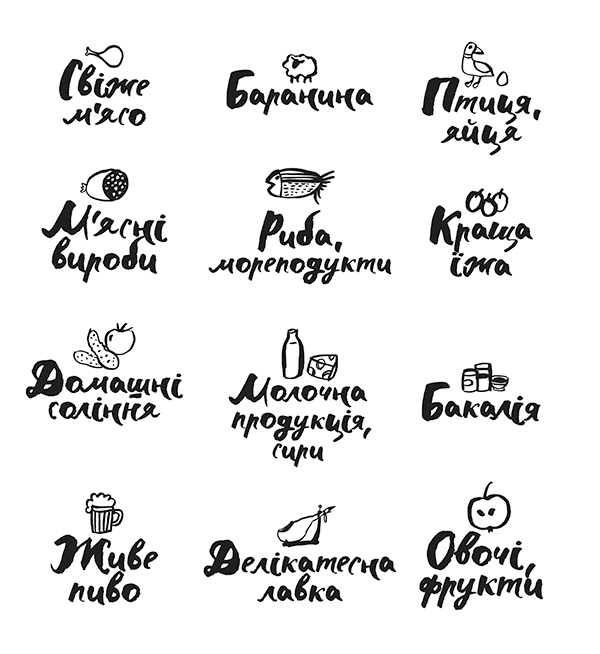 Свіже
м'ясо
Баранина
Птиця,
яйця
М'ясні
вироби
Риба,
мореподукти
Краща
їжа
Домашні
соління
Молочна
продукція,
сири
Бакалія
Живе
пиво
Делікатесна
лавка
Овочі,
фрукти